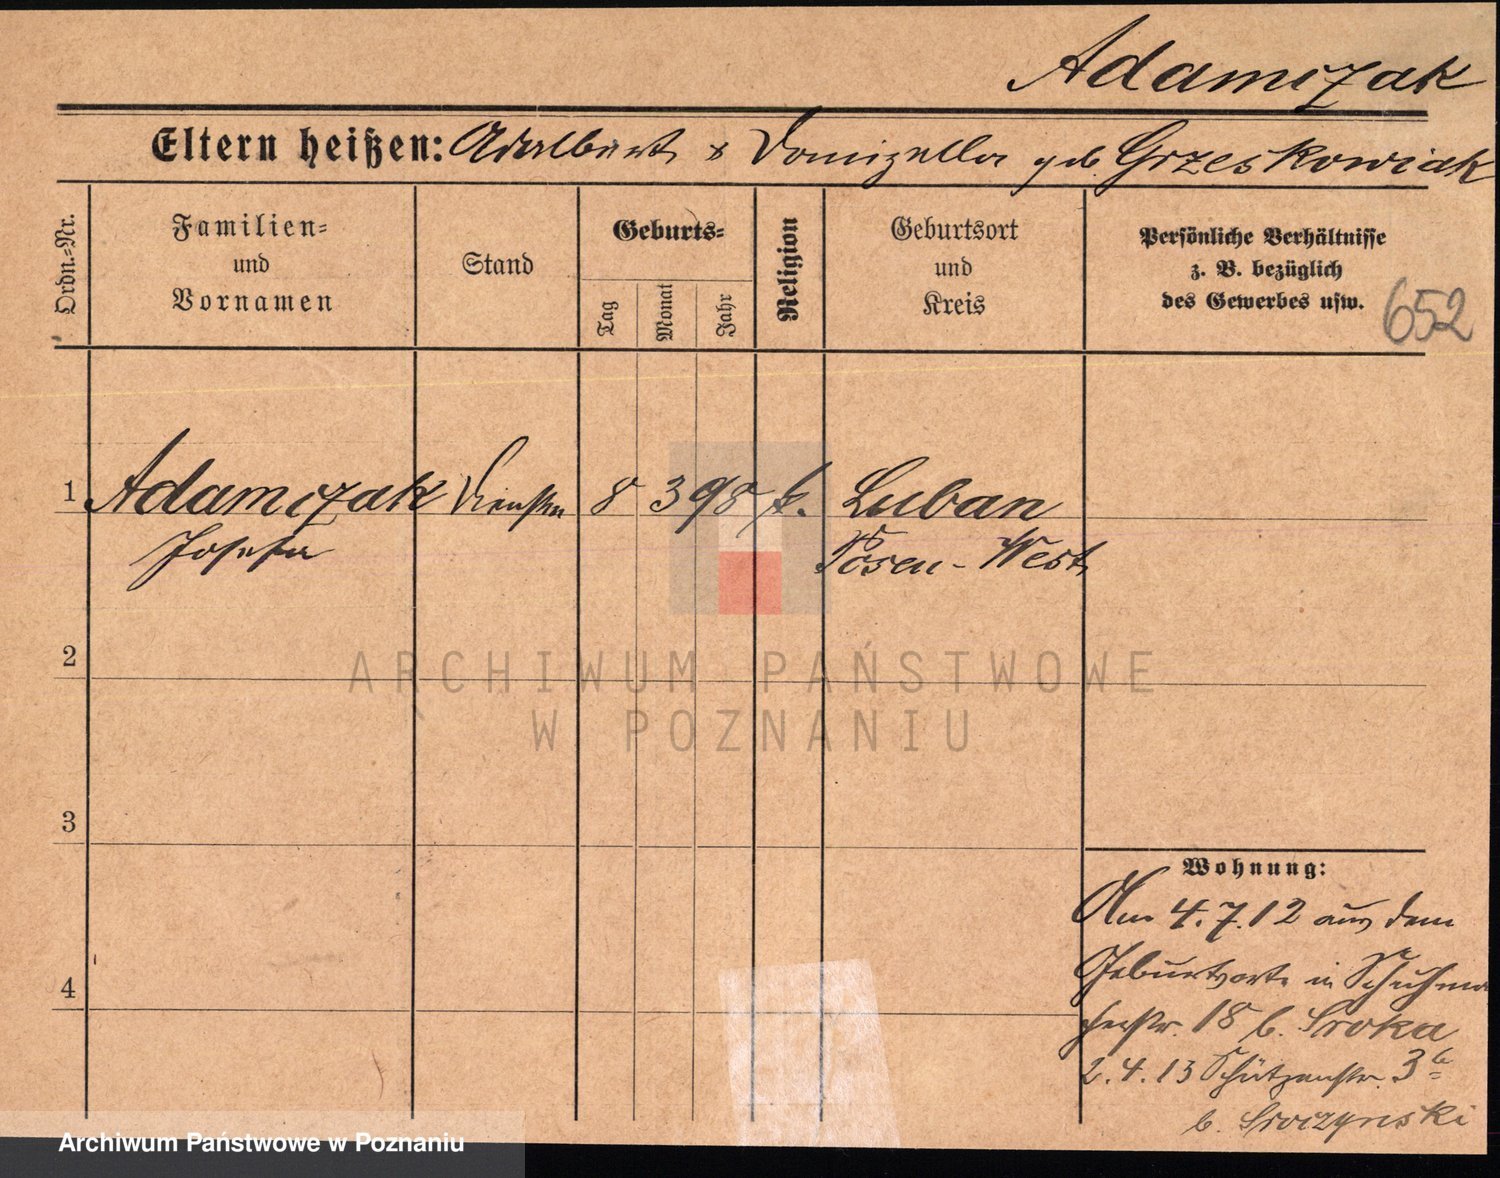 Adamczak
Eltern heißen: Adalbert & Domizella geb. Grzeskowiak
Ordn.-Nr.
Familien-
und
Vornamen
Stand
Geburts-
Tag
Monat
Jahr
Religion
Geburtsort
und
Kreis
Persönliche Verhältnisse
z. B. bezüglich
des Gewerbes usw.
652
1 Adamczak 8 3 98 k. Luban
Josefa Posen-West
2
3
4
Wohnung:
Am 4.7.12 aus dem
Geburtsorte in Schuhma
cherstr. 18 b. Sroka
2.4.13 Schützenstr. 3b
b. Sroczynski
ARCHIWUM PAŃSTWOWE
W POZNANIU
Archiwum Państwowe w Poznaniu